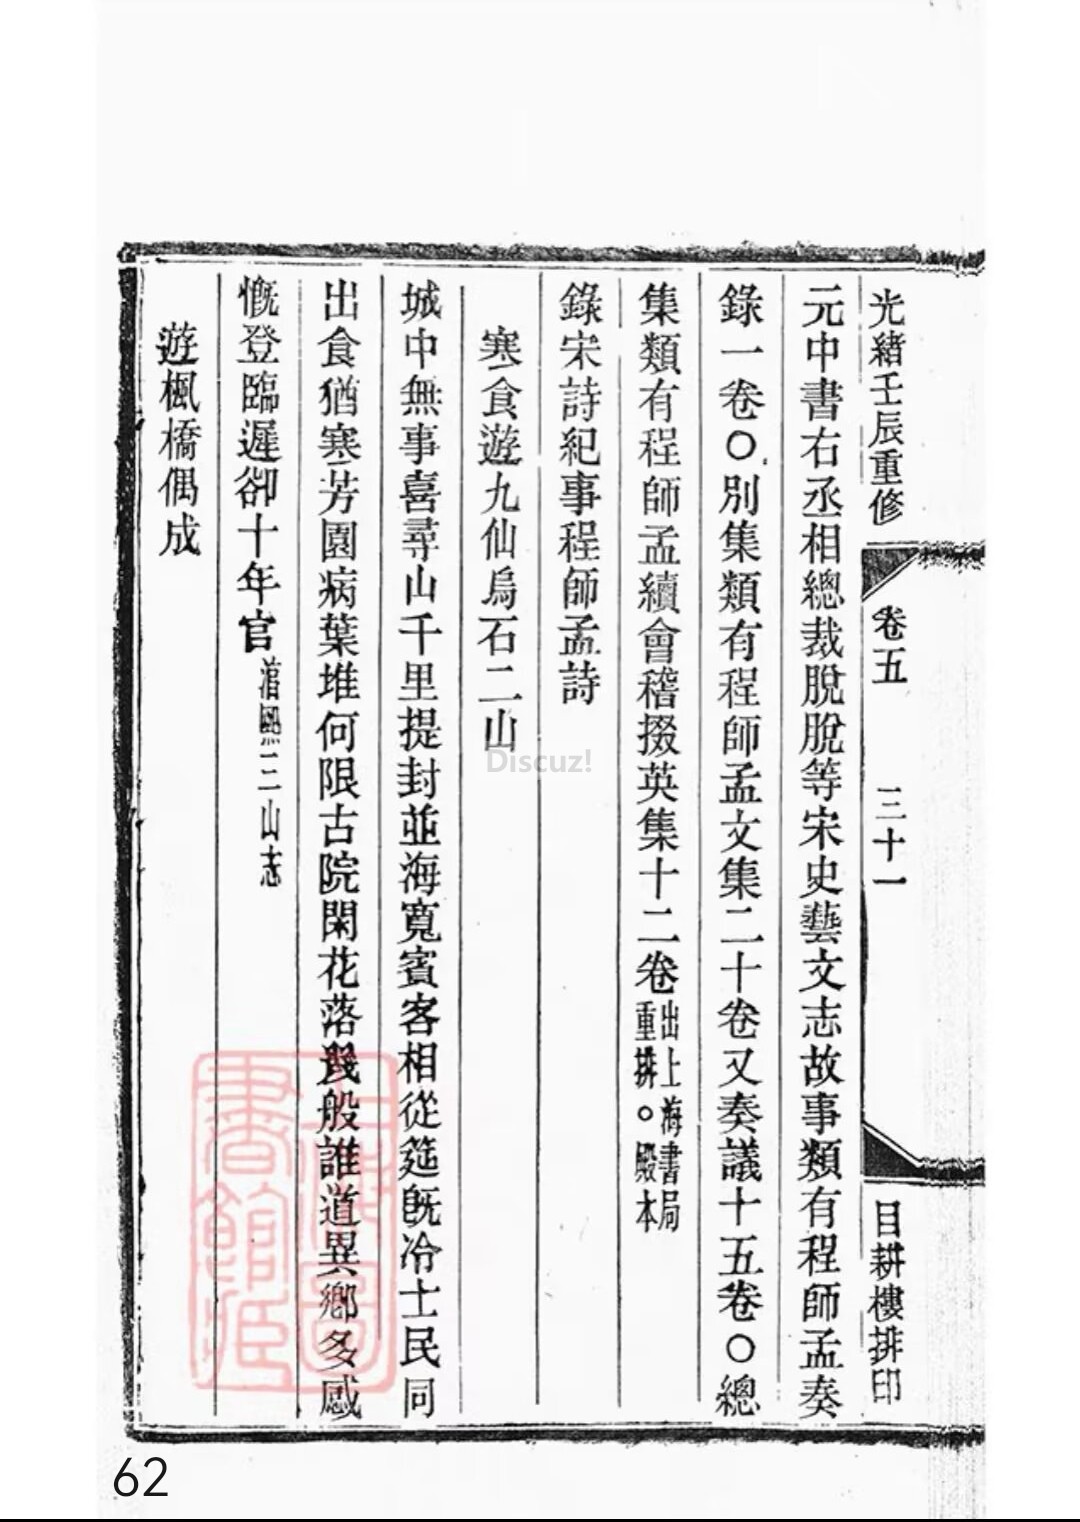 光緒壬辰重修
卷五
三十一
目耕樓排印
元中書右丞相總裁脫脫等宋史藝文志故事類有程師孟奏
錄一卷〇別集類有程師孟文集二十卷又奏議十五卷〇總
集類有程師孟續會稽掇英集十二卷出上海書局重排。殿本
錄宋詩紀事程師孟詩
寒食遊九仙烏石二山
城中無事喜尋山千里提封並海寬賓客相從筵既冷士民同
出食猶寒芳園病葉堆何限古院閑花落幾般誰道異鄉多感
慨登臨遲卻十年官淳熙三山志
遊楓橋偶成
上海圖書館藏
Discuz!
62